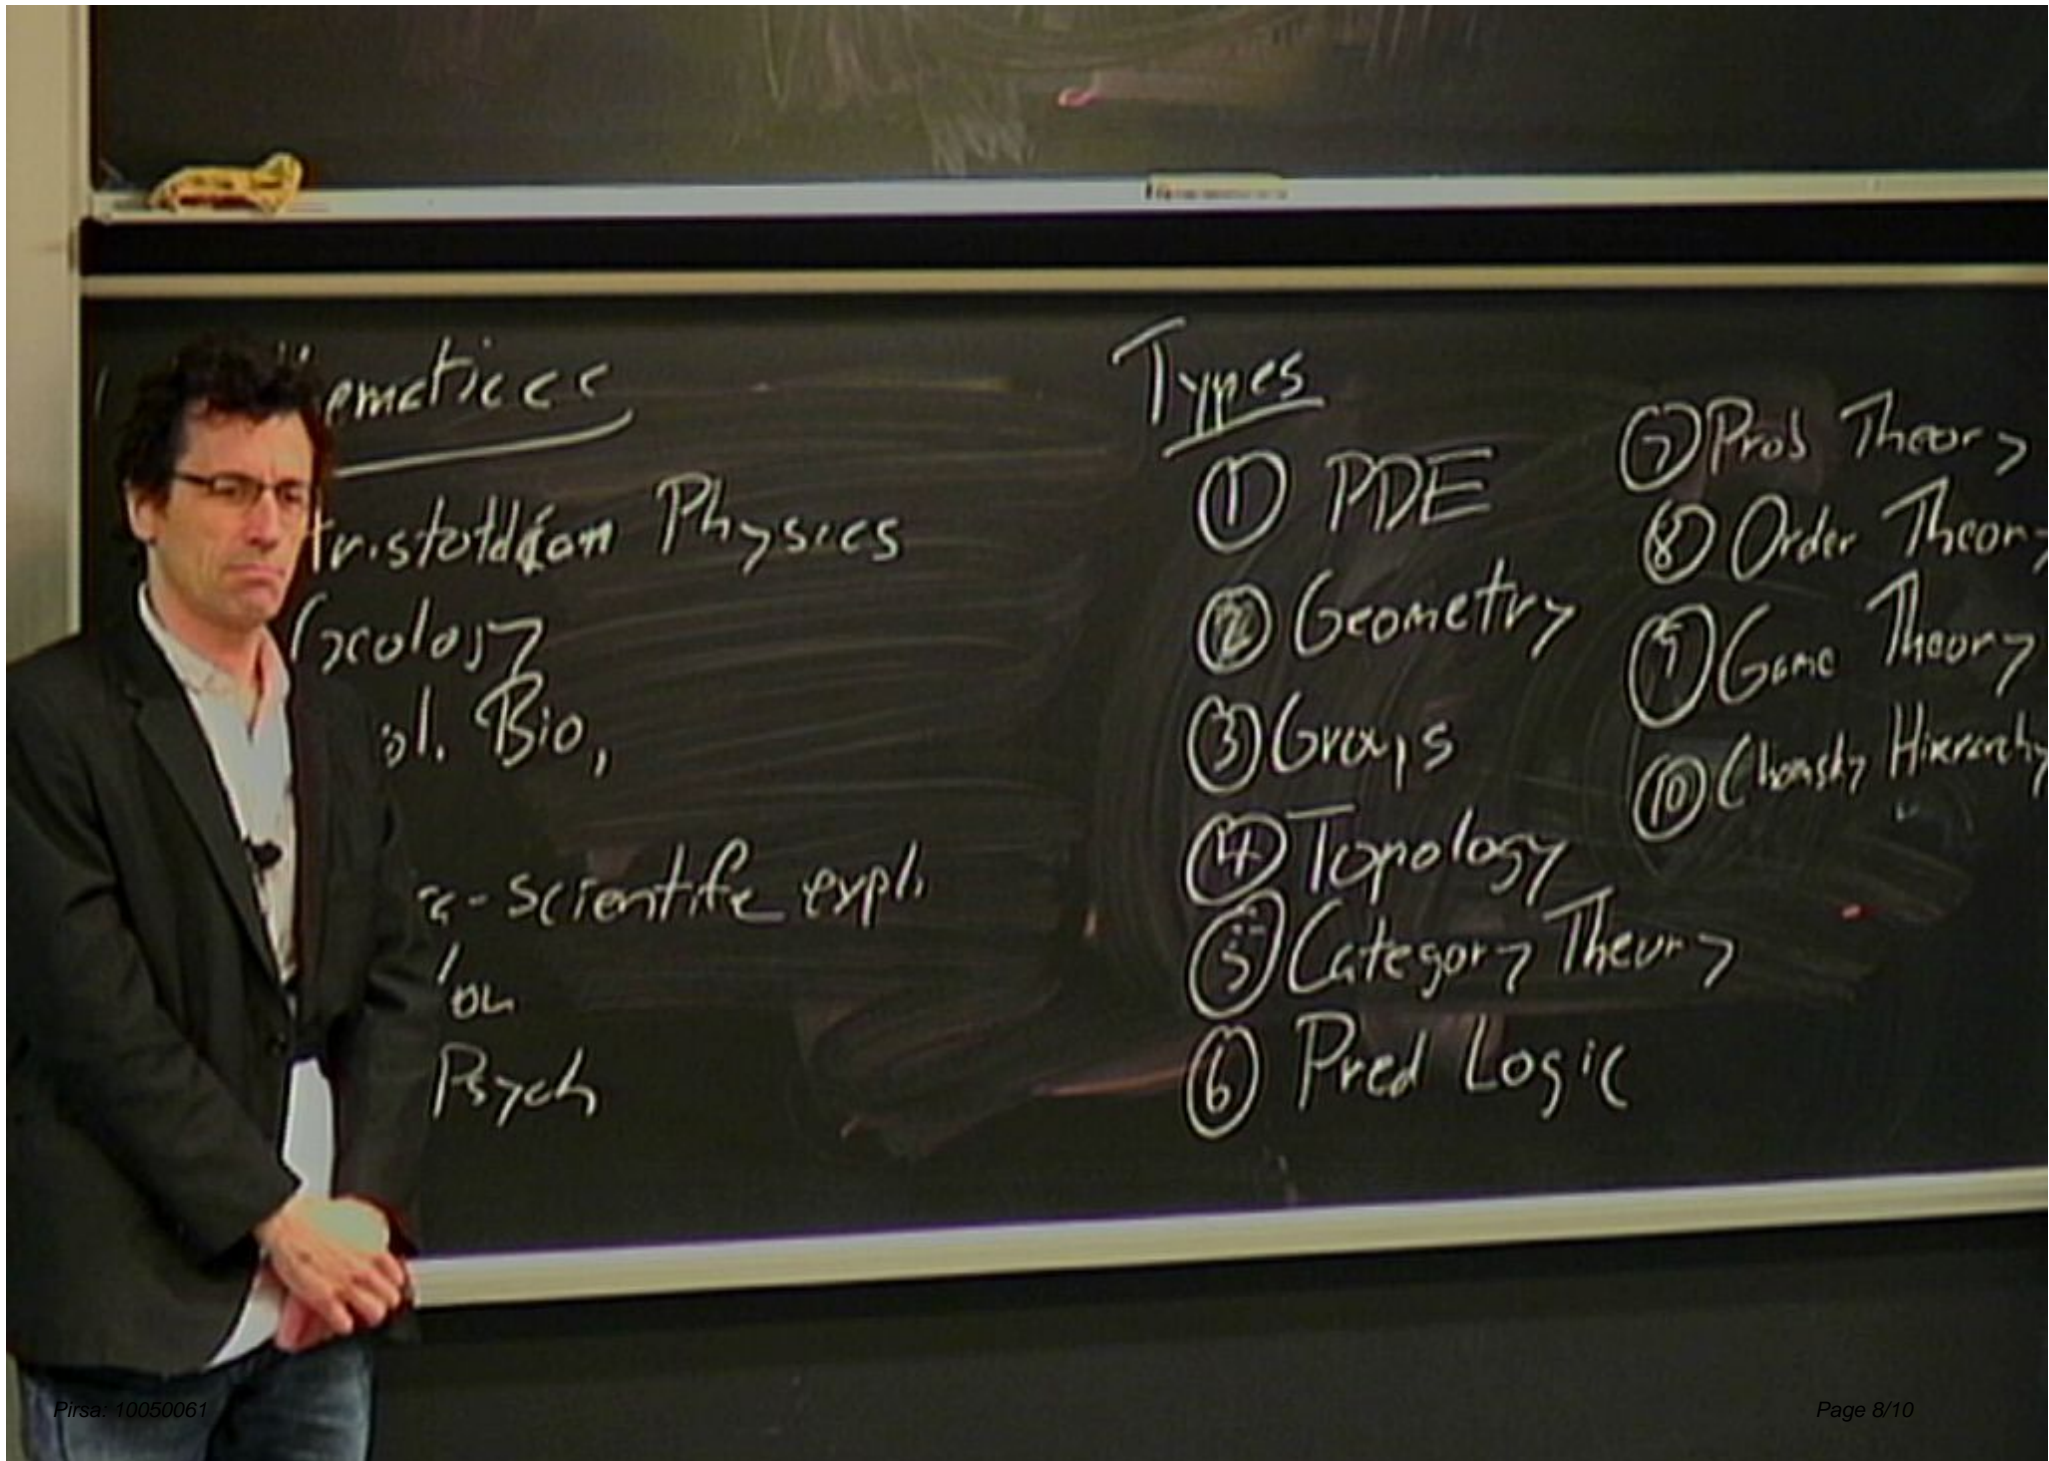 Physics
Bio,
-scientific expl.
Psych
Types
① PDE
② Geometry
③ Groups
④ Topology
⑤ Category Theory
⑥ Pred Logic
⑦ Prob Theory
⑧ Order Theory
⑨ Game Theory
⑩ Chomsky Hierarchy
Pirsa: 10050061
Page 8/10